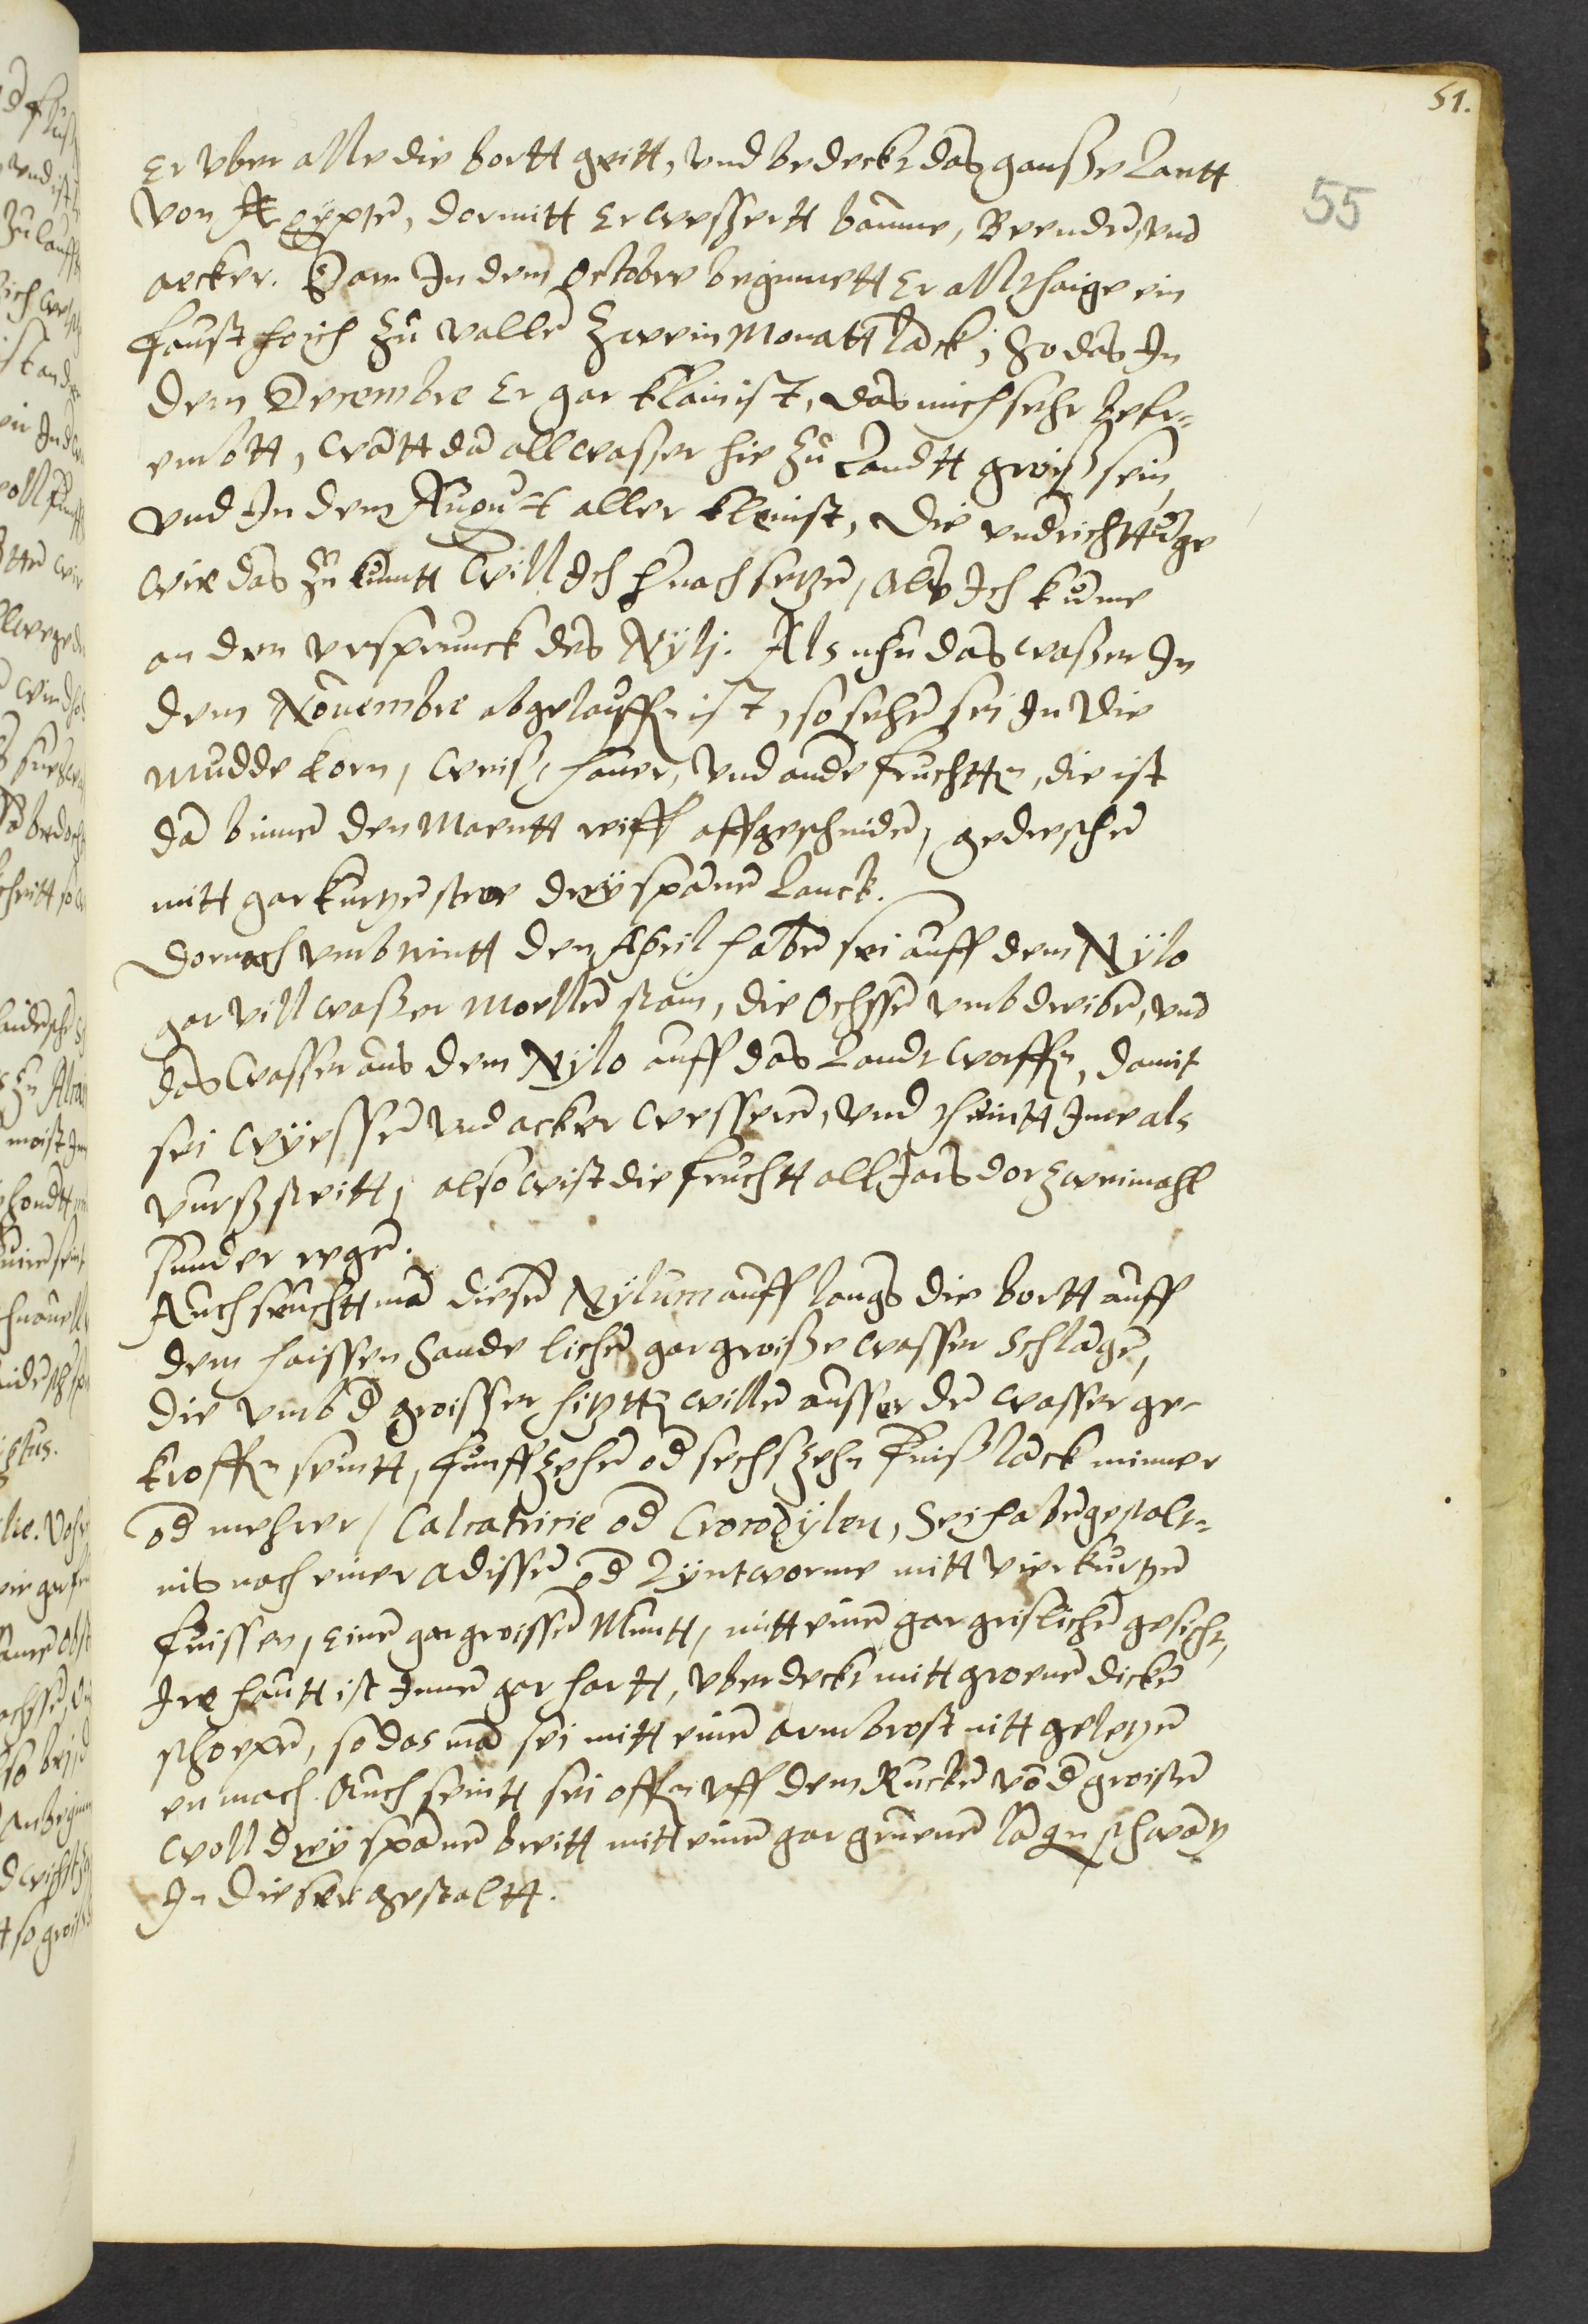 51.
55
Er vber alle die bortt geitt, vnd bedeckt das gantze Lantt
von Aegypte, dormitt Er wessertt baume, Beende vnd
aecker. Dan In dem Octobre beginnett Er all thaige ein
faust hoich zu valle zwein Monatt lack, So das In
dem Decembre Er gar klain ist, das mich sehr befr=
embtt, wantt da all wasser hie zu Landtt groiß sein,
vnd In dem August aller kleinst, Die vndrichttuge
wie das zu kumtt will Ich hnach setze, als Ich kume
an den vrsprunck des Nylj. Als nhu das waßer In
dem Nouembre abgelauffn ist, so sehe sei In die
mudde korn, weiß, hauer, vnd ande fruchttn, die ist
da binne den Maentt reiff affgeschnide, gedresche
mitt gar kurtze stroe drÿ spane lanck.
Dornach vmbtrintt den April habe sei auff dem Nÿlo
gar vill waßer Moelle stain, die Ochsse vmbdreibe, vnd
das wasser aus dem Nÿlo auff das Landt worffn, damit
sei wÿesse vnd acker wessere, vnd scheintt Jme als
vurß steitt, also wist die fruchtt all Jars dor zweimahl
sunder rege.
Auch seuchtt ma diese Nÿlum auff langs die bortt auff
dem haissen Sande liche gar groiße wasser Schlage,
die vmb d groisser hitzttn wille ausser de wasser ge-
kroffn seintt, funffzehe od sechszehn fuiß lack minner
od meherer, Calcatricie od Crocodÿlen, Sei habe gestalt=
nis nach einer adisse od Lÿntworme mitt vier kurtze
fuissen, eine gar groisse Muntt, mitt eine gar grislich gesicht,
Ire hautt ist Inne gar hartt, vberdeckt mitt groene dicke
schoepe, so das ma sei mitt eine armbrost nitt geletze
en mach. Auch seintt sei offn vff dem Rucke vo d groiste
woll drÿ spane breitt mitt eine gar gruene lagn schwatz
In dieser gestaltt.